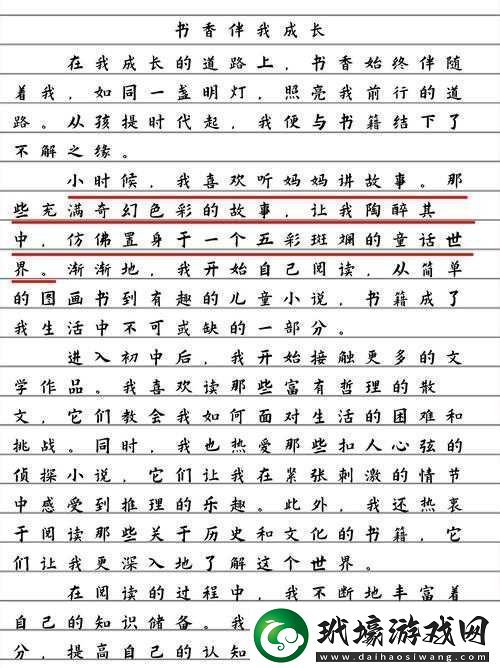 书香伴我成长
在我成长的道路上，书香始终伴随
着我，如同一盏明灯，照亮我前行的道
路。从孩提时代起，我便与书籍结下了
不解之缘。
小时候，我喜欢听妈妈讲故事。那
些充满奇幻色彩的故事，让我陶醉其
中，仿佛置身于一个五彩斑斓的童话世
界。渐渐地，我开始自己阅读，从简单
的图画书到有趣的儿童小说，书籍成了
我生活中不可或缺的一部分。
进入初中后，我开始接触更多的文
学作品。我喜欢读那些富有哲理的散
文，它们教会我如何面对生活的困难和
挑战。同时，我也热爱那些扣人心弦的
侦探小说，它们让我在紧张刺激的情节
中感受到推理的乐趣。此外，我还热衷
于阅读那些关于历史和文化的书籍，它
们让我更深入地了解这个世界。
在阅读的过程中，我不断地丰富着
自己的知识储备。我
分，提高自己的认知
玳壕游戏网
www.daihaosiwang.com